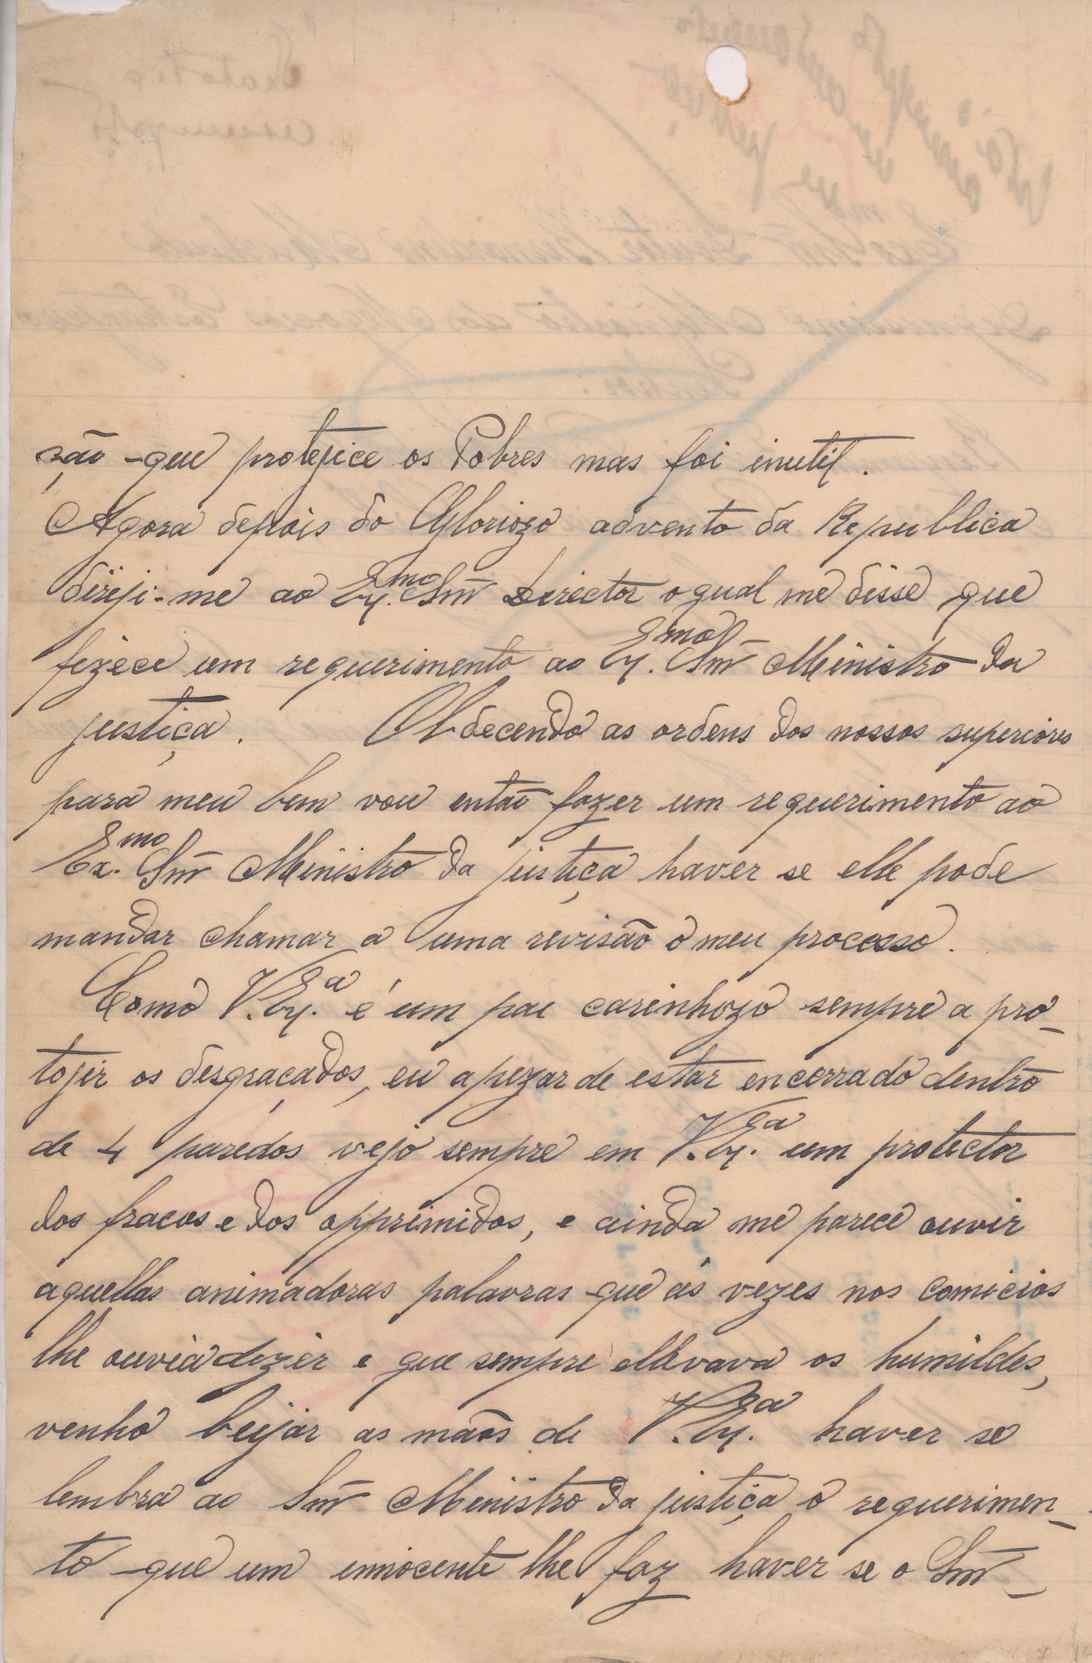 ção que protejice os Pobres mas foi inutil.
Agora depois do Gloriozo advento da Republica
diriji-me ao Ex.mo Snr̃ Director o qual me disse que
fizece um requerimento ao Ex.mo Snr̃ Ministro da
justiça. Obdecendo as ordens dos nossos superiores
para meu bem vou então fazer um requerimento ao
Ex.mo Snr̃ Ministro da justiça haver se elle pode
mandar chamar a uma revisão o meu processo.
Como V. Ex.a é um pae carinhozo sempre a pro-
tojir os desgraçados, eu apezar de estar encerrado dentro
de 4 paredos vejo sempre em V. Ex.a um protector
dos fracos e dos opprimidos, e ainda me parece ouvir
aquellas animadoras palavras que ás vezes nos comicios
lhe ouvia dizer e que sempre ellevava os humildes,
venho beijar as mãos de V. Ex.a haver se
lembra ao Snr̃ Ministro da justiça o requerimen-
to que um innocente lhe faz haver se o Snr̃